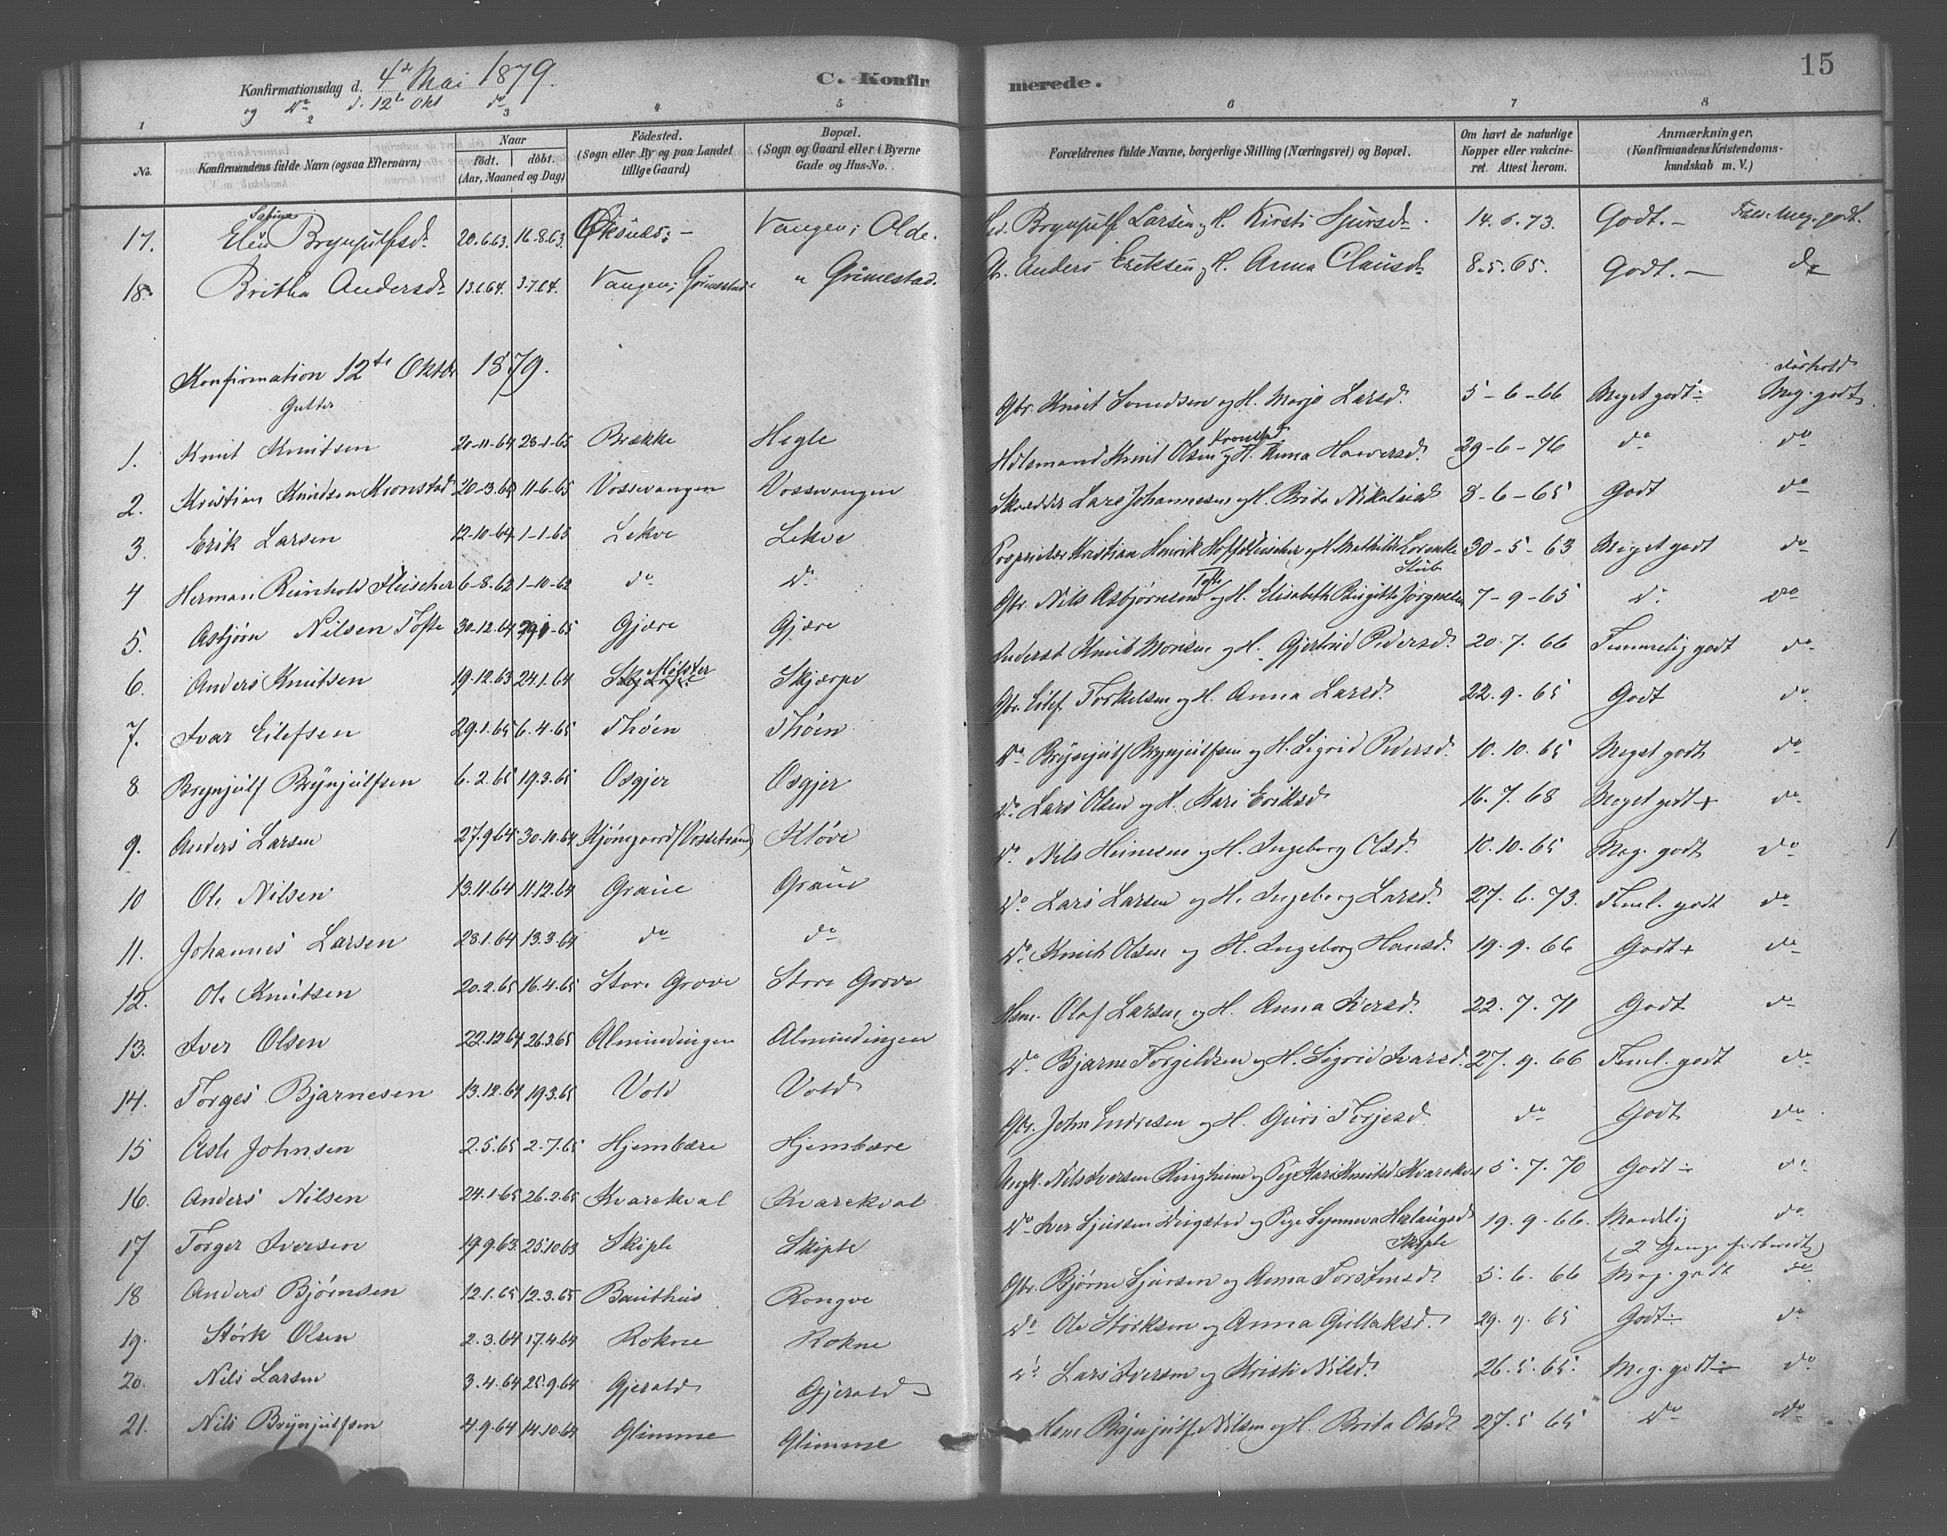 15
Konfirmationsdag d. 4de Mai 1879.
og do d. 12te Okt do
C. Konfirmerede.
1 2 3 4 5 6 7 8
No. Konfirmandens fulde Navn (ogsaa Efternavn) Naar født. døbt. (Aar, Maaned og Dag) Födested. (Sogn eller By og paa Landet tillige Gaard) Bopæl. (Sogn og Gaard eller i Byerne Gade og Hus-No. Forældrenes fulde Navne, borgerlige Stilling (Næringsvei) og Bopæl. Om havt de naturlige Kopper eller vakcineret. Attest herom. Anmærkninger. (Konfirmandens Kristendomskundskab m. V.)
17. Elen Sabina Brynjulfsd. 20.6.63. 16.8.63. Vangen, Olde. Brynjulf Larsen og H. Kirsti Sjursd. 14.6.73. Godt. – meg. godt.
18. Britha Andersd. 3.7.64. Vangen, Grimestad " Grimestad. Gbr. Anders Eriksen og H. Anna Clausd. 8.5.65. Godt. – do
Konfirmation 12te Oktbr 1879.
Gutter
1. Knut Knutsen 20-11-64 28-1-65 Brække Hegle Gbr. Knut Svendsen og H. Marjo Larsd. 5-6-66 Meget godt Forhold Meg. godt
2. Kristian Knudsen Kronstad 20-3-65 11-6-65 Vossevangen Vossevangen Knut Olsen Kronstad og H. Anna Haversd. 29-6-76 do do
3. Erik Larsen 12-10-64 1-1-65 Lekve Lekve Skrædder Lars Johannesen og H. Brita Nikolaid. 8-6-65 Godt do
4 Herman Reinhold Fleischer 6-8-62 1-10-62 do do Proprietær Kristian Henrik Hoff Fleischer og H. Mathilde Lorentze Stub 30-5-63 Meget godt do
5. Asbjørn Nilsen Tofte 30-12-64 29-1-65 Gjære Gjære Gbr. Nils Asbjørnsen Tofte og H. Elisabeth Birgitte Jörgensen 7-9-65 do do
6. Anders Knutsen 19.12.63 24.1.64 Mölster Skjærpe Knut Monsen og H. Gjertrud Pedersd. 20.7.66 Temmelig godt do
7. Ivar Eilefsen 29.1.65 6.4.65 Thöen Thöen Gbr. Eilef Torkelsen og H. Anna Larsd. 22.9.65 Godt do
8 Brynjulf Brynjulfsen 6.2.65 19.3.65 Osgjer Osgjer do Brynjulf Brynjulfsen og H. Sigrid Pedersd. 10.10.65 Meget godt do
9. Anders Larsen 27.9.64 30.10.64 Kjönegaard (Vossestrand) Klöve do Lars Olsen og H. Kari Eriksd. 16.7.68 Meget godt + do
10 Ole Nilsen 13.11.64 11.12.64 Graue Graue do Nils Heinesen og H. Ingeborg Olsd. 10.10.65 Meg. godt do
11. Johannes Larsen 28.1.64 13.3.64 do do do Lars Larsen og H. Ingeborg Larsd. 27.6.73. Teml. godt do
12. Ole Knutsen 20.2.65 16.4.65 Store Grove Store Grove do Knut Olsen og H. Ingeborg Hansd. 19.9.66 Godt + do
13. Iver Olsen 22.12.64 26.3.65 Almindingen Almindingen Hsm. Olaf Larsen og H. Anna Iversd. 22.7.71 Godt do
14. Torges Bjarnesen 13.12.64 19.3.65 Vold Vold do Bjarne Torgeldsen og H. Sigrid Ivarsd. 27.9.66 Teml. godt do
15 Asle Johnsen 2.5.65 2.7.65 Hjembære Hjembære Gbr. John Endresen og H. Guri Torjesd. do Godt do
16. Anders Nilsen 24.1.65 26.2.65 Kvarekval Kvarekval Ungk. Nils Iversen Ringheim og Pige Kari Knutsd. Kvarekval 5.7.70 Godt – do
17 Torger Iversen 19.9.63. 25.10.63 Skiple Skiple do Iver Sjursen Dugstad og Pige Synneva Herlaugsd. Skiple 19.9.66. Maadelig do
(2 Gange forberedt)
18 Anders Bjørnsen 12.1.65 12.3.65 Bauthus Rongve Gbr. Bjørne Sjursen og Anna Torstensd. 5.6.66 Meg. godt do
19. Størk Olsen 2.3.64 17.4.64 Rokne Rokne do Ole Størksen og Anna Gullaksd. 29.9.65 Godt – do
20. Nils Larsen 3.4.64 25.9.64 Gjerald Gjerald do Lars Iversen og Kristi Nilsd. 26.5.65. Meg. godt – do
21. Nils Brynjulfsen 4.9.64 14.10.64 Glimme Glimme Hsm Brynjulf Nilsen og H. Brita Olsd. 27.5.65 do do